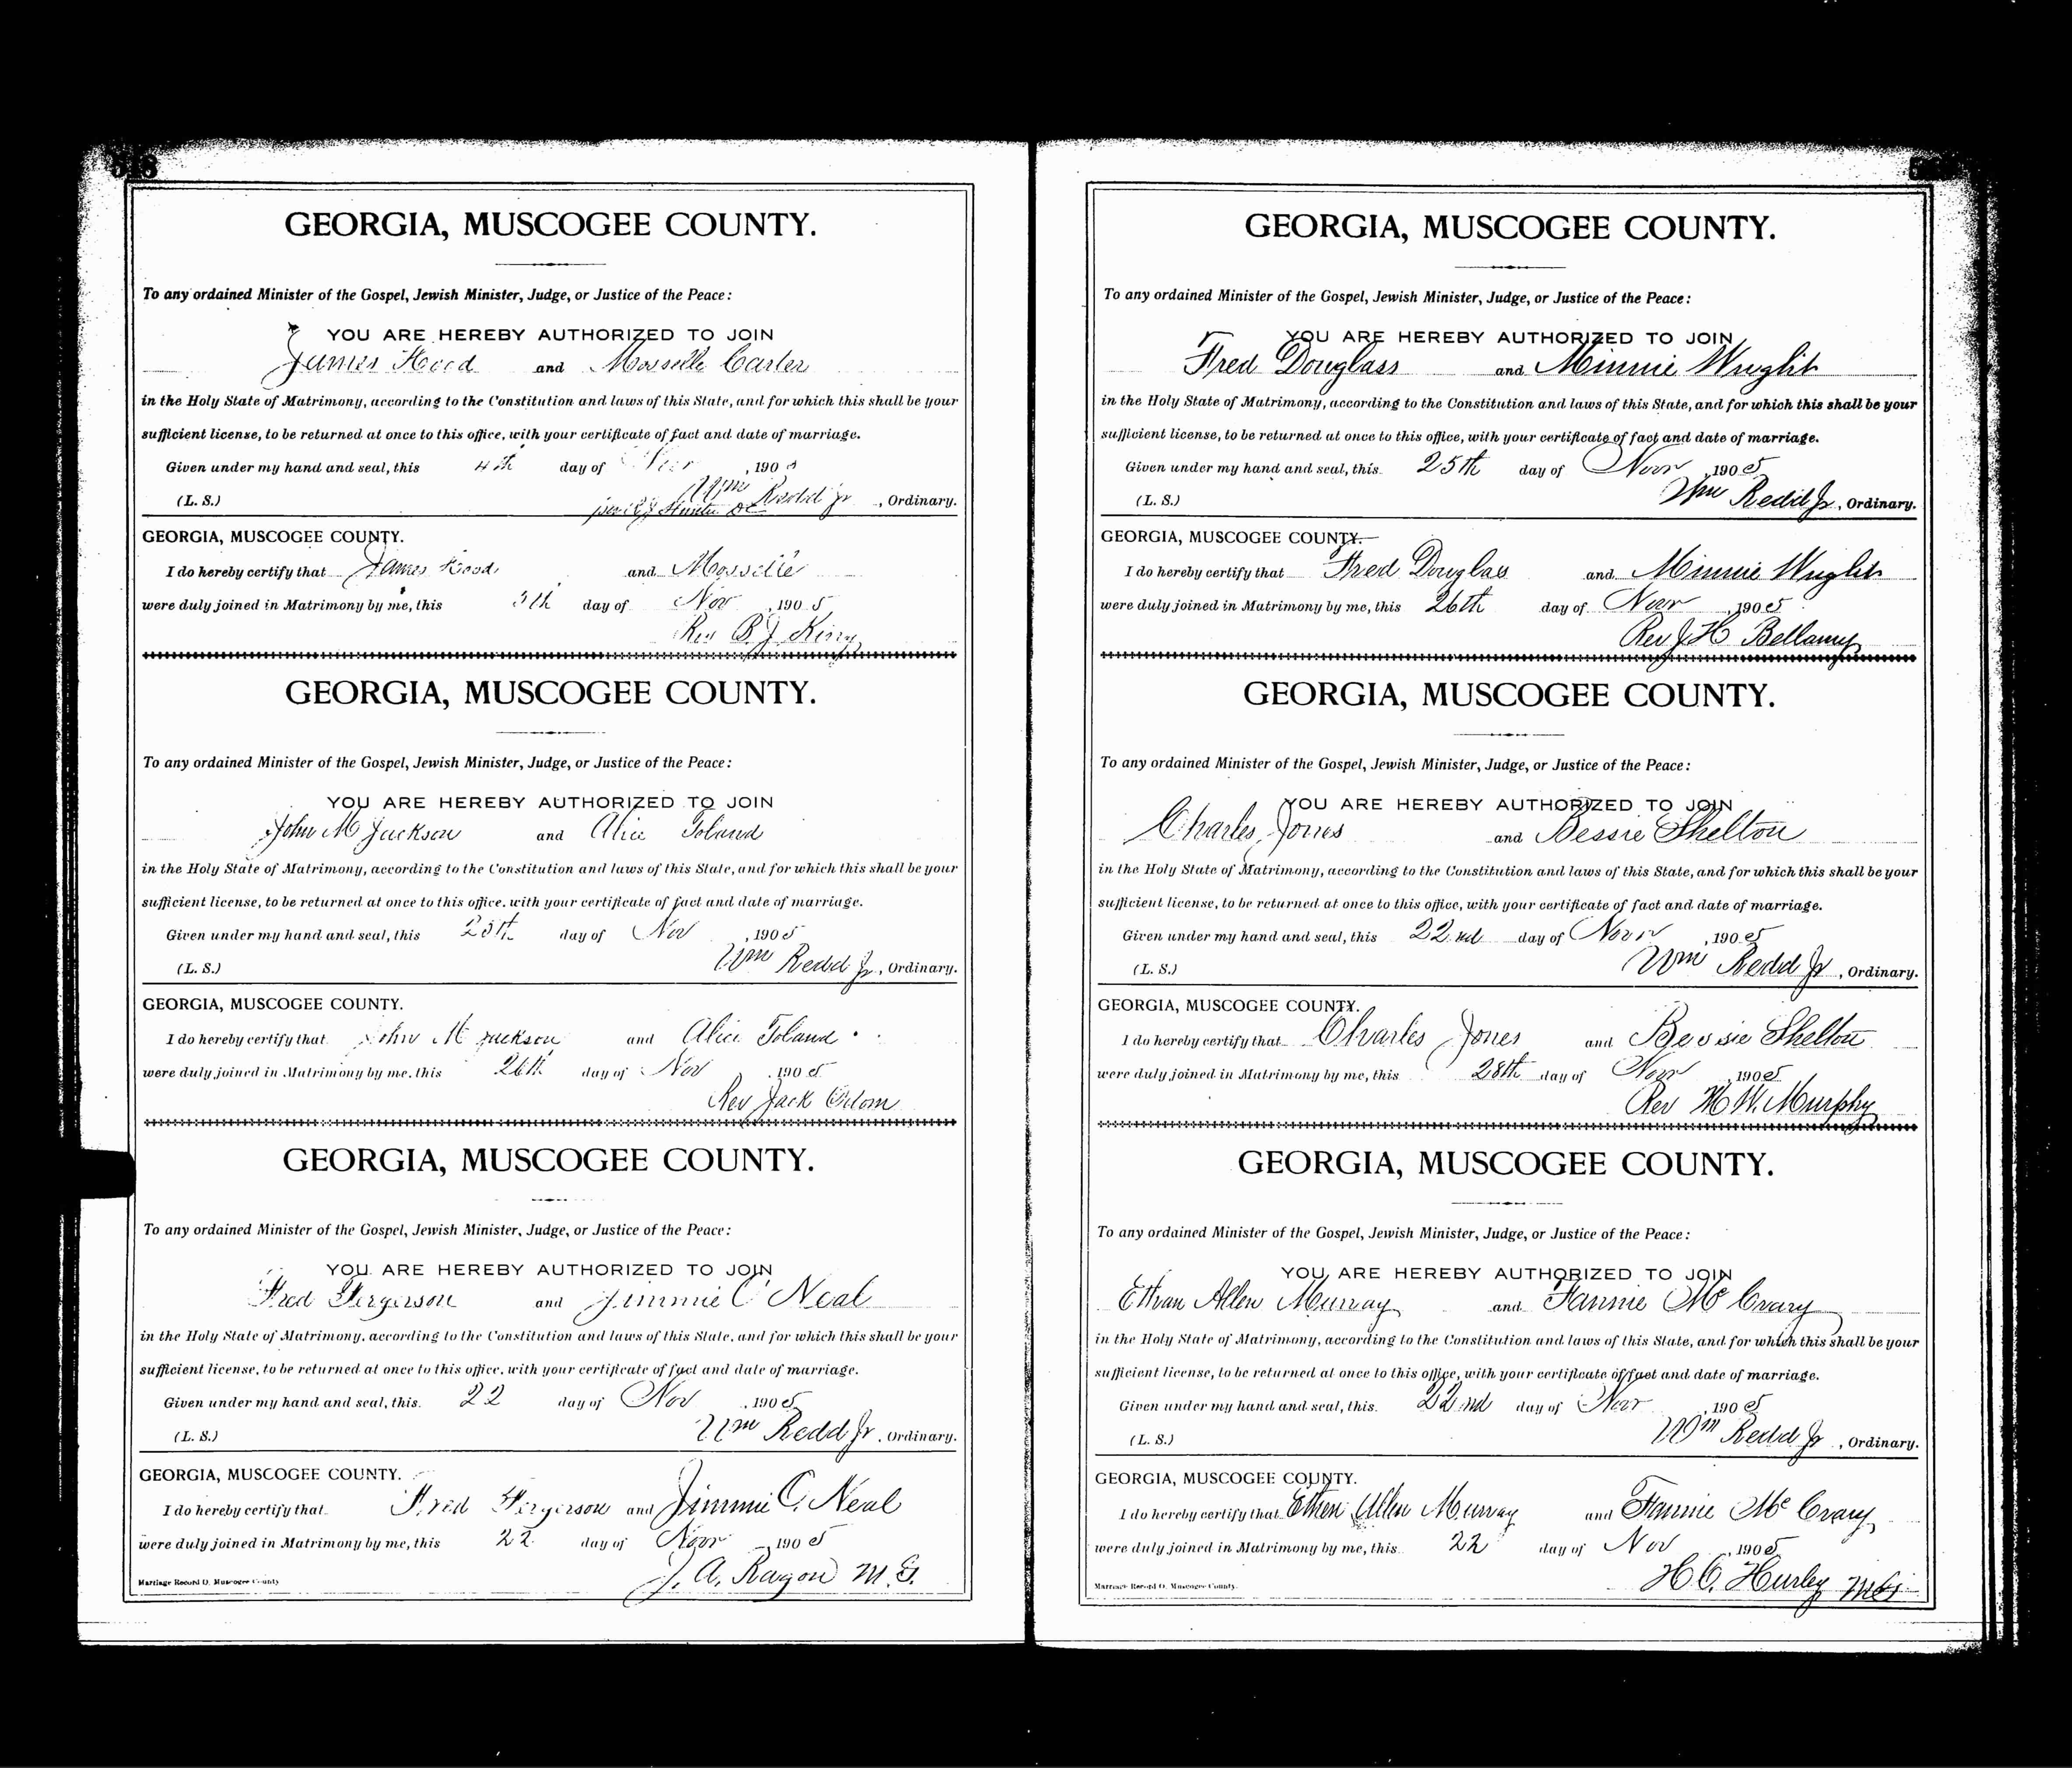 GEORGIA, MUSCOGEE COUNTY.
To any ordained Minister of the Gospel, Jewish Minister, Judge, or Justice of the Peace:
YOU ARE HEREBY AUTHORIZED TO JOIN
James Hood and Mosselle Carter
in the Holy State of Matrimony, according to the Constitution and laws of this State, and for which this shall be your
sufficient license, to be returned at once to this office, with your certificate of fact and date of marriage.
Given under my hand and seal, this 4th day of Nov , 190
(L. S.) Wm Redd Jr , Ordinary.
GEORGIA, MUSCOGEE COUNTY.
I do hereby certify that James Hood and Mosselle
were duly joined in Matrimony by me, this 5th day of Nov , 190 5
Rev B. J. King
GEORGIA, MUSCOGEE COUNTY.
To any ordained Minister of the Gospel, Jewish Minister, Judge, or Justice of the Peace:
YOU ARE HEREBY AUTHORIZED TO JOIN
John M Jackson and Alice Toland
in the Holy State of Matrimony, according to the Constitution and laws of this State, and for which this shall be your
sufficient license, to be returned at once to this office, with your certificate of fact and date of marriage.
Given under my hand and seal, this 25th day of Nov , 190 5
(L. S.) Wm Redd Jr , Ordinary.
GEORGIA, MUSCOGEE COUNTY.
I do hereby certify that John M Jackson and Alice Toland
were duly joined in Matrimony by me, this 26th day of Nov , 190 5
Rev Jack Odom
GEORGIA, MUSCOGEE COUNTY.
To any ordained Minister of the Gospel, Jewish Minister, Judge, or Justice of the Peace:
YOU ARE HEREBY AUTHORIZED TO JOIN
Fred Fergerson and Jimmie O'Neal
in the Holy State of Matrimony, according to the Constitution and laws of this State, and for which this shall be your
sufficient license, to be returned at once to this office, with your certificate of fact and date of marriage.
Given under my hand and seal, this 22 day of Nov , 190 5
(L. S.) Wm Redd Jr , Ordinary.
GEORGIA, MUSCOGEE COUNTY.
I do hereby certify that Fred Fergerson and Jimmie O. Neal
were duly joined in Matrimony by me, this 22 day of Novr , 190 5
J. A. Ragon M. G.
Marriage Record O, Muscogee County
GEORGIA, MUSCOGEE COUNTY.
To any ordained Minister of the Gospel, Jewish Minister, Judge, or Justice of the Peace:
YOU ARE HEREBY AUTHORIZED TO JOIN
Fred Douglass and Minnie Wright
in the Holy State of Matrimony, according to the Constitution and laws of this State, and for which this shall be your
sufficient license, to be returned at once to this office, with your certificate of fact and date of marriage.
Given under my hand and seal, this 25th day of Novr , 190 5
(L. S.) Wm Redd Jr , Ordinary.
GEORGIA, MUSCOGEE COUNTY.
I do hereby certify that Fred Douglass and Minnie Wright
were duly joined in Matrimony by me, this 26th day of Novr , 190 5
Rev J H Bellamy
GEORGIA, MUSCOGEE COUNTY.
To any ordained Minister of the Gospel, Jewish Minister, Judge, or Justice of the Peace:
YOU ARE HEREBY AUTHORIZED TO JOIN
Charles Jones and Bessie Shelton
in the Holy State of Matrimony, according to the Constitution and laws of this State, and for which this shall be your
sufficient license, to be returned at once to this office, with your certificate of fact and date of marriage.
Given under my hand and seal, this 22nd day of Novr , 190 5
(L. S.) Wm Redd Jr , Ordinary.
GEORGIA, MUSCOGEE COUNTY.
I do hereby certify that Charles Jones and Bessie Shelton
were duly joined in Matrimony by me, this 28th day of Novr , 190 5
Rev H. W. Murphy
GEORGIA, MUSCOGEE COUNTY.
To any ordained Minister of the Gospel, Jewish Minister, Judge, or Justice of the Peace:
YOU ARE HEREBY AUTHORIZED TO JOIN
Ethan Allen Murray and Fannie McCrary
in the Holy State of Matrimony, according to the Constitution and laws of this State, and for which this shall be your
sufficient license, to be returned at once to this office, with your certificate of fact and date of marriage.
Given under my hand and seal, this 22nd day of Novr , 190 5
(L. S.) Wm Redd Jr , Ordinary.
GEORGIA, MUSCOGEE COUNTY.
I do hereby certify that Ethen Allen Murray and Fannie McCrary
were duly joined in Matrimony by me, this 22 day of Nov , 190 5
H. C. Hurley MG
Marriage Record O, Muscogee County.